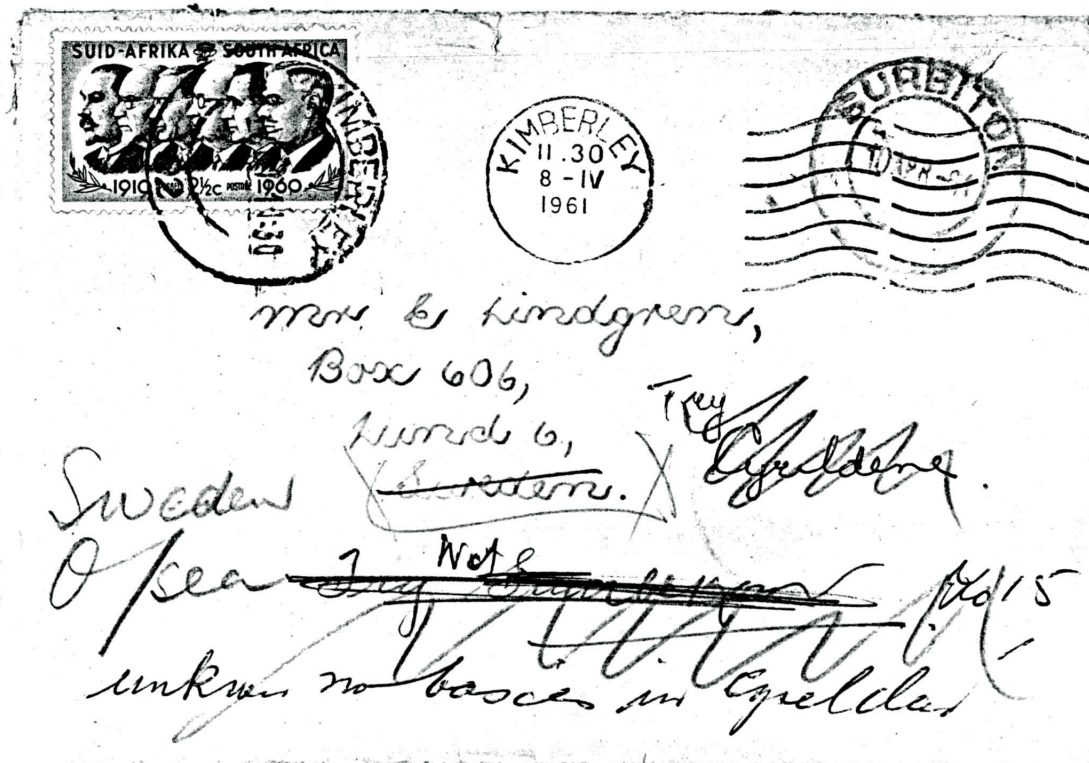 SUID-AFRIKA SOUTH AFRICA
1910 2½c POSTAGE 1960
KIMBERLEY
KIMBERLEY
11.30
8-IV
1961
SURBITON
Mr. E Lindgren,
Box 606,
Lund 6,
Sweden.
Try
Cyrildene.
Sweden
O/sea Try Not
15
unknown no boxes in Cyrildene